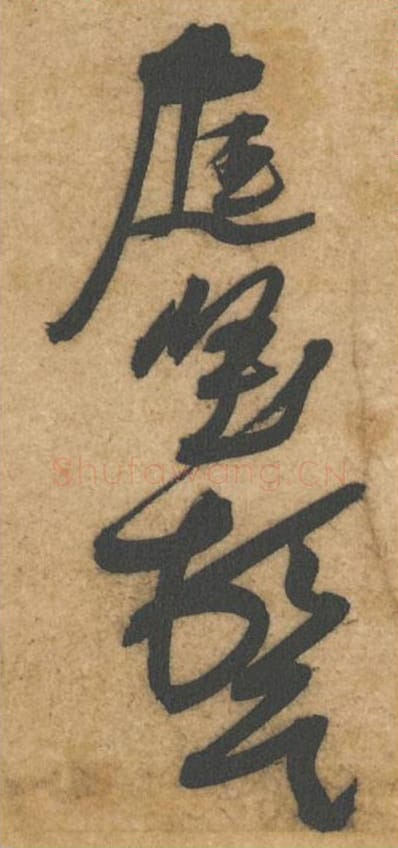 庭堅
Shufawang.CN